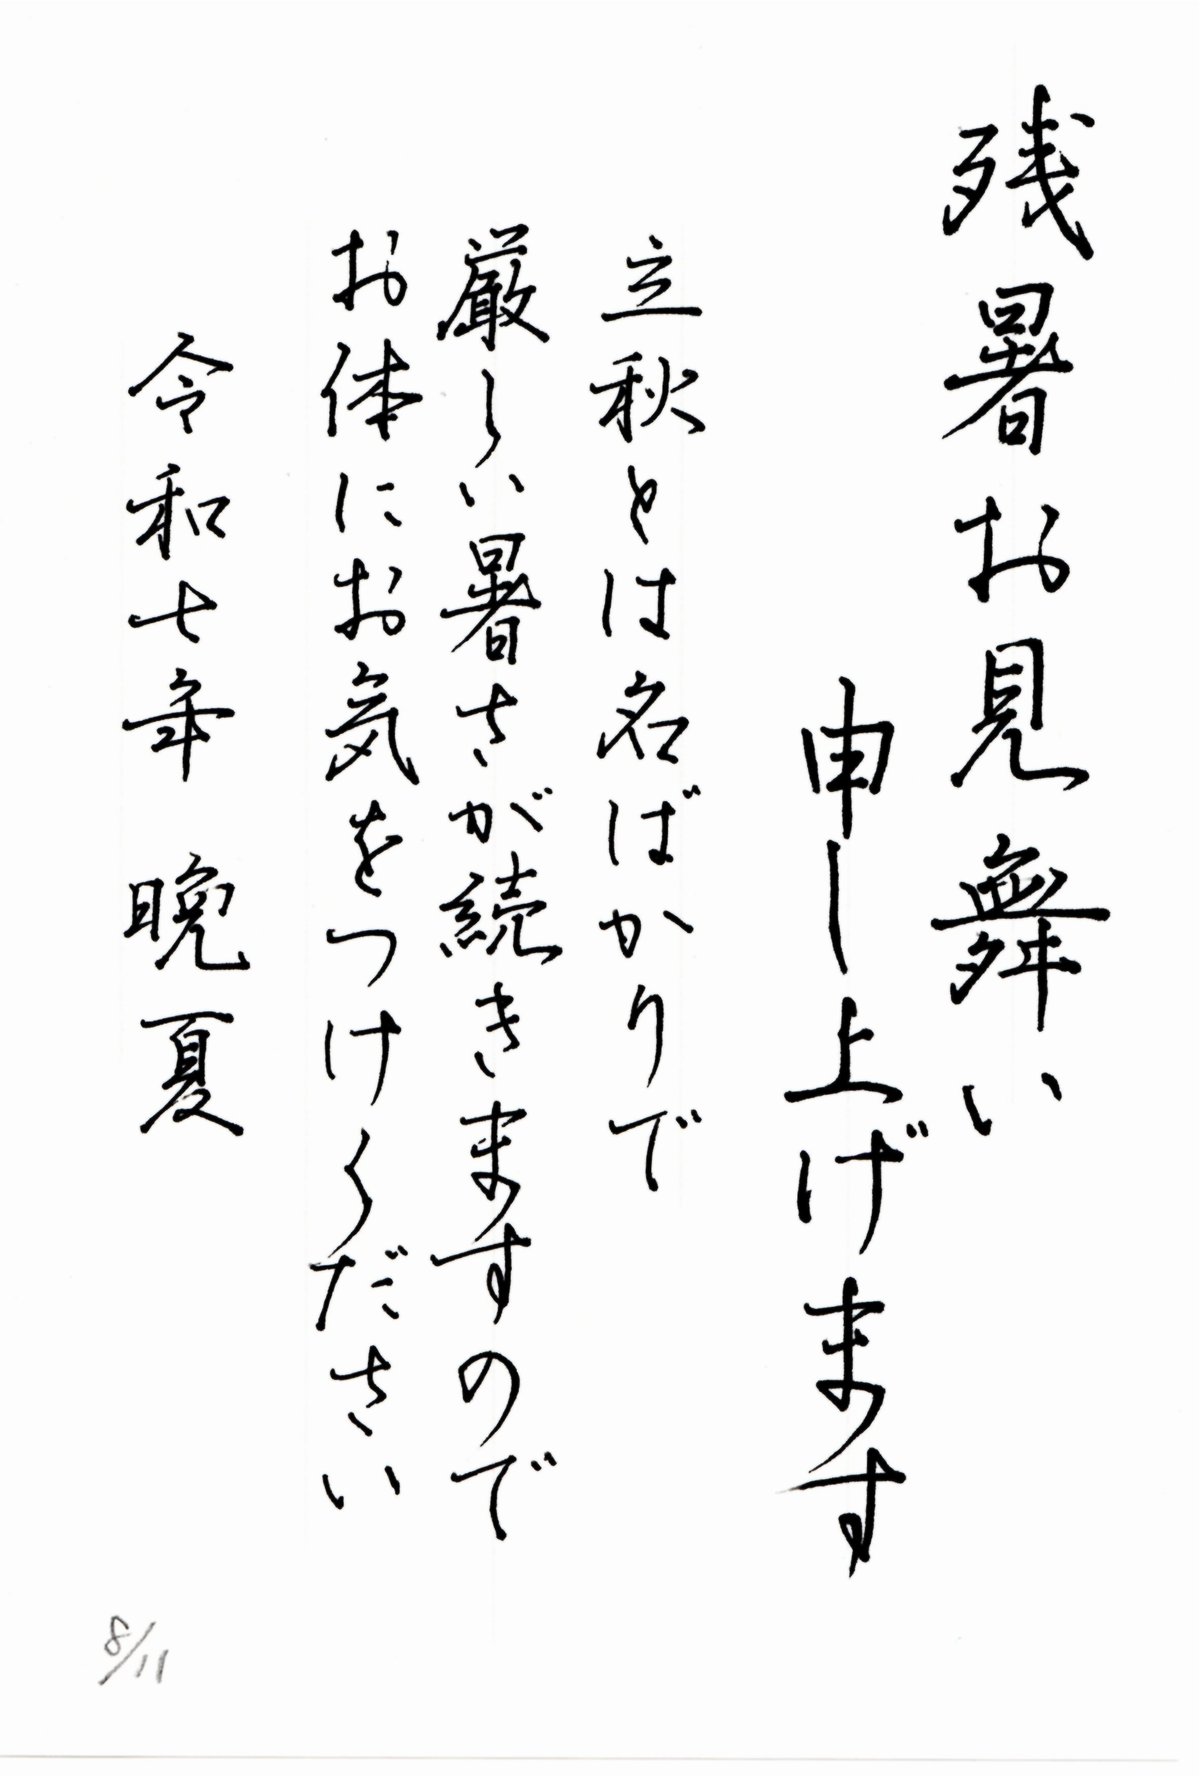 残暑お見舞い
申し上げます
立秋とは名ばかりで
厳しい暑さが続きますので
お体にお気をつけください
令和七年 晩夏
8/11